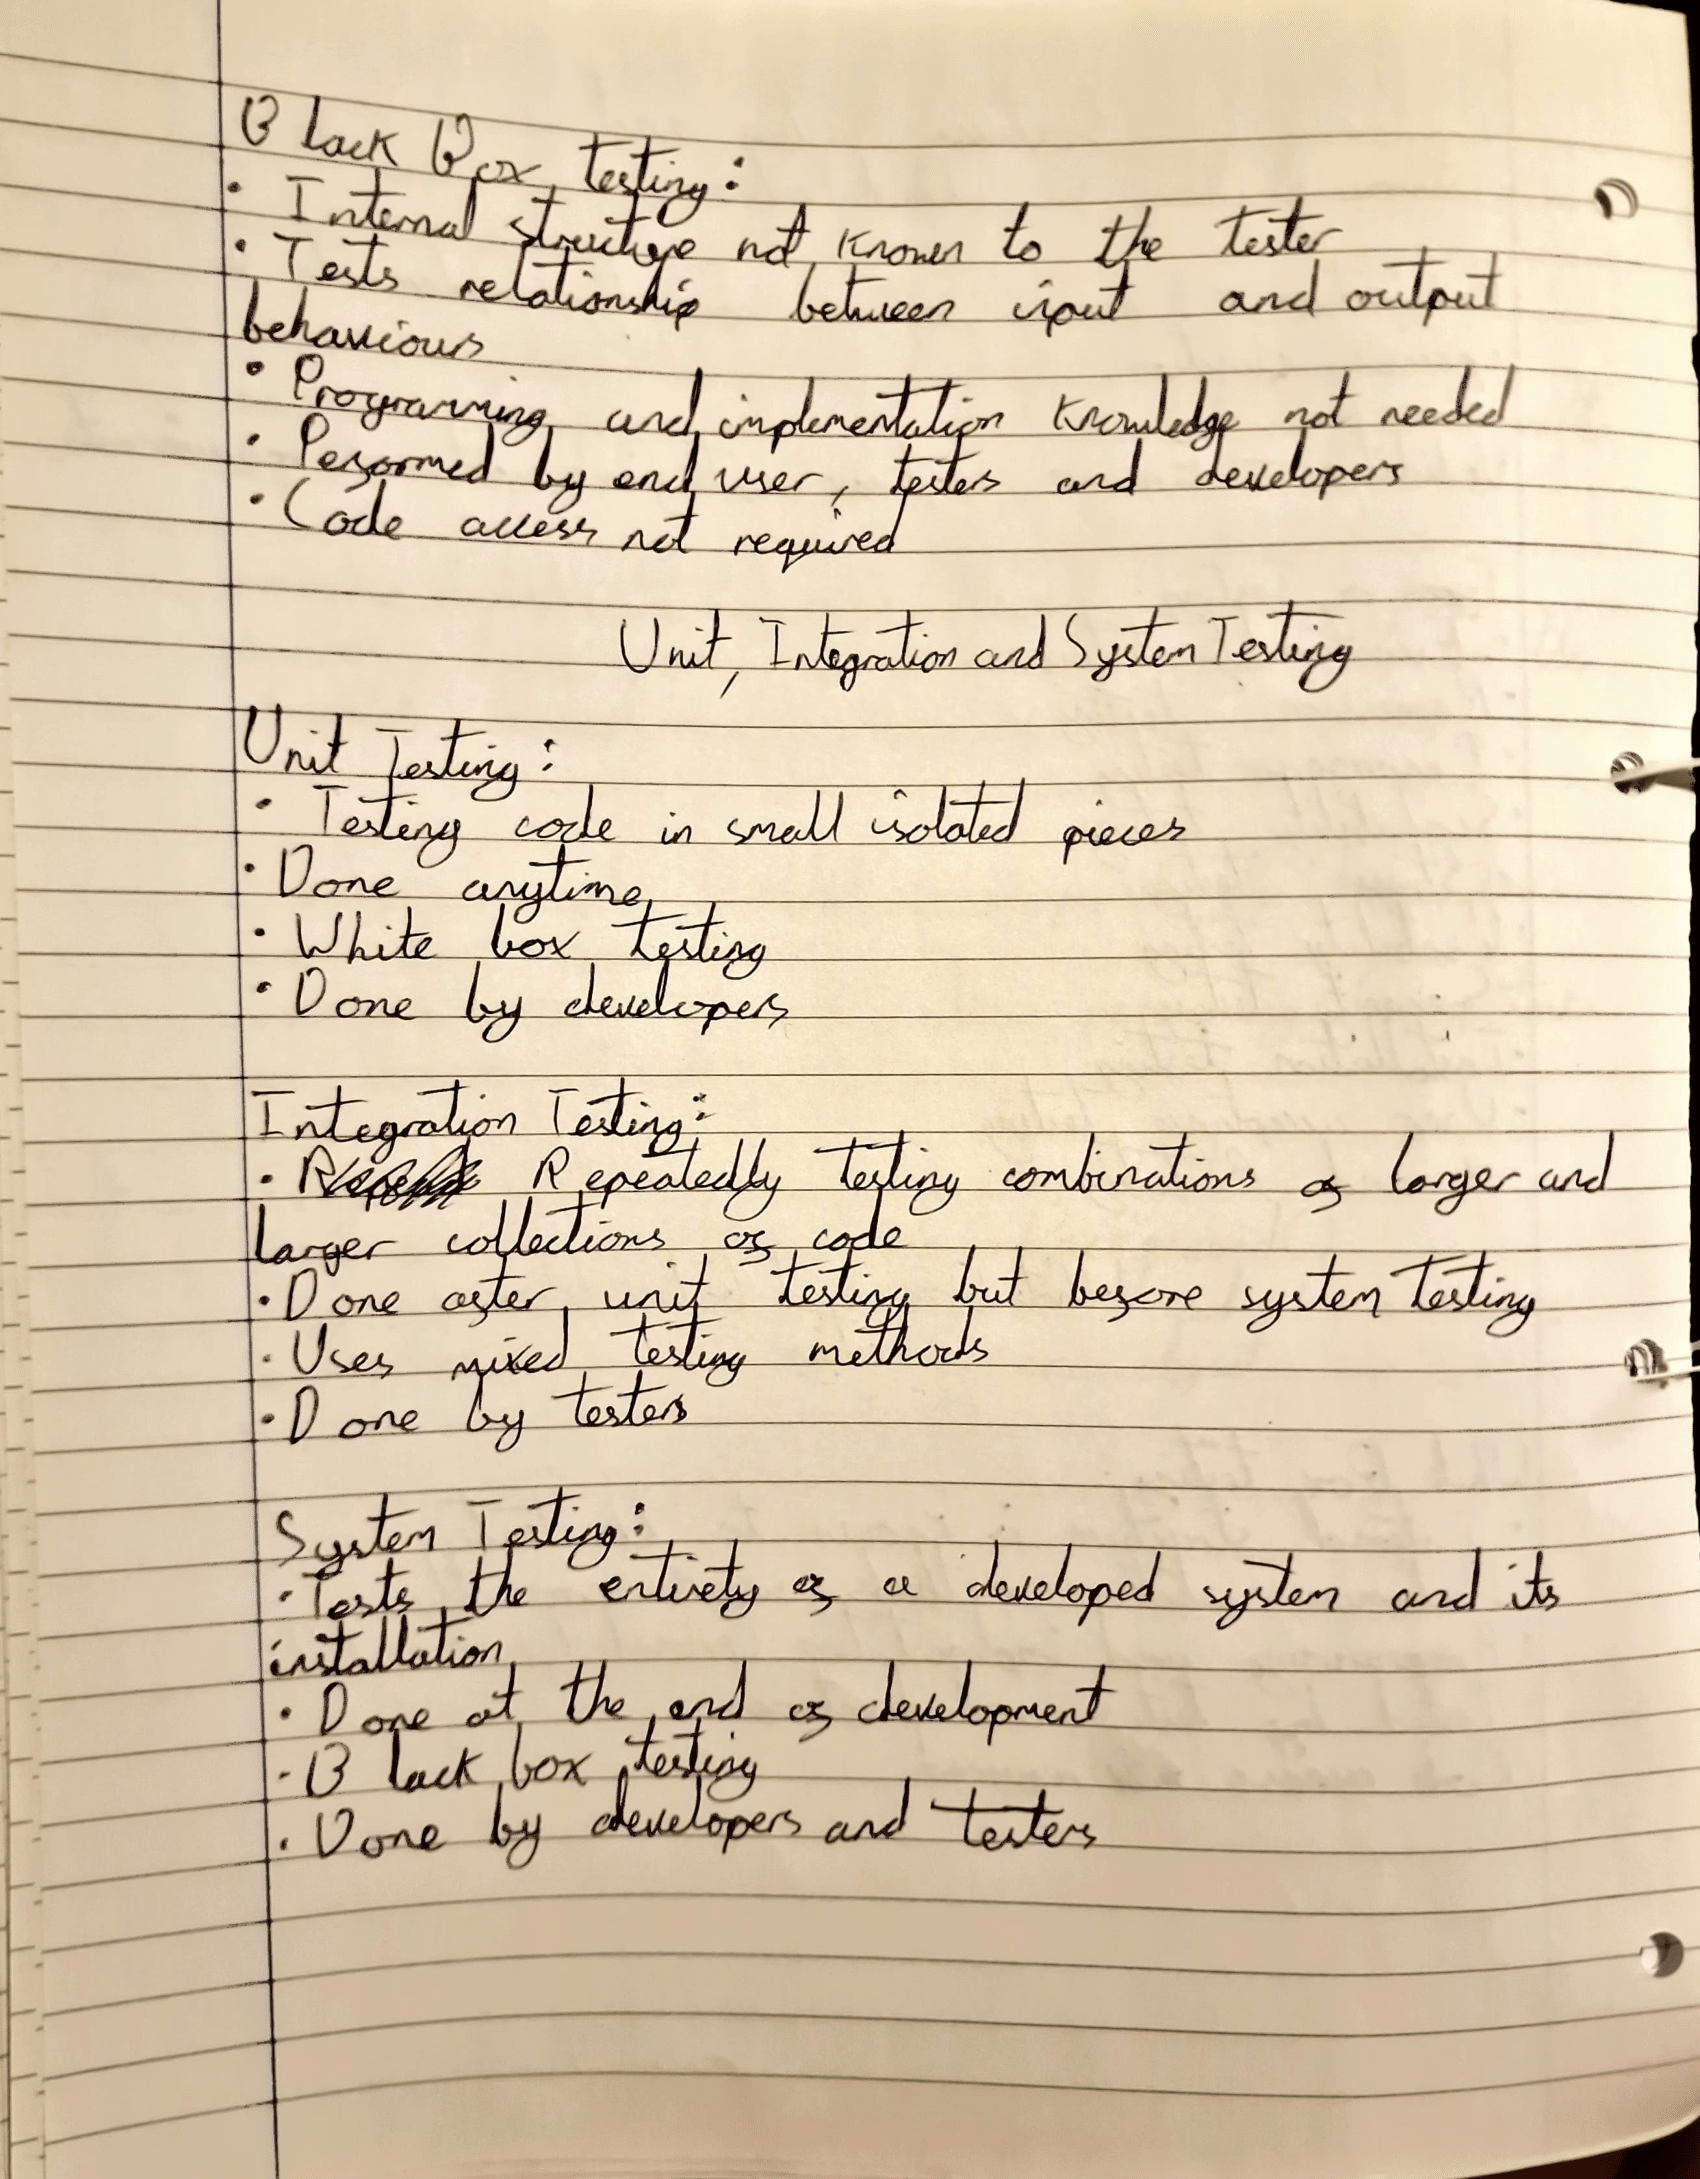 Black Box testing:
• Internal structure not known to the tester
• Tests relationship between input and output
behaviours
• Programming and implementation knowledge not needed
• Performed by end user, testers and developers
• Code access not required
Unit, Integration and System Testing
Unit Testing:
• Testing code in small isolated pieces
• Done anytime
• White box testing
• Done by developers
Integration Testing:
• Repeatedly testing combinations of larger and
larger collections of code
• Done after unit testing but before system testing
• Uses mixed testing methods
• Done by testers
System Testing:
• Tests the entirety of a developed system and its
installation
• Done at the end of development
• Black box testing
• Done by developers and testers